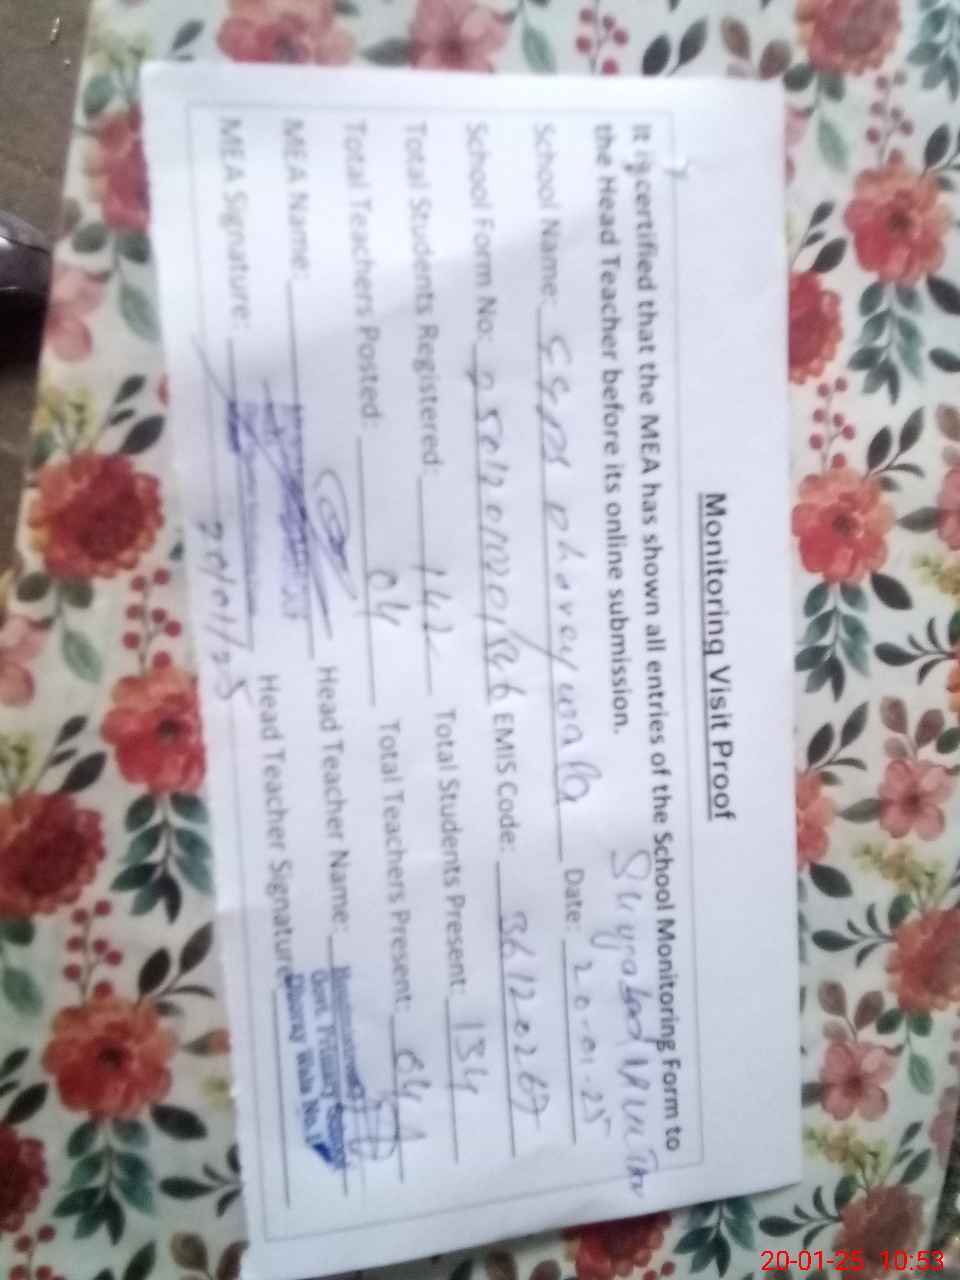 Monitoring Visit Proof
It is certified that the MEA has shown all entries of the School Monitoring Form to
the Head Teacher before its online submission.
School Name: Date: 20-01-25
School Form No: EMIS Code: 36120267
Total Students Registered: 142 Total Students Present: 134
Total Teachers Posted: 04 Total Teachers Present: 04
MEA Name: Head Teacher Name:
Govt. Primary School
MEA Signature: Head Teacher Signature
Wala No.1
20/01/25
20-01-25 10:53